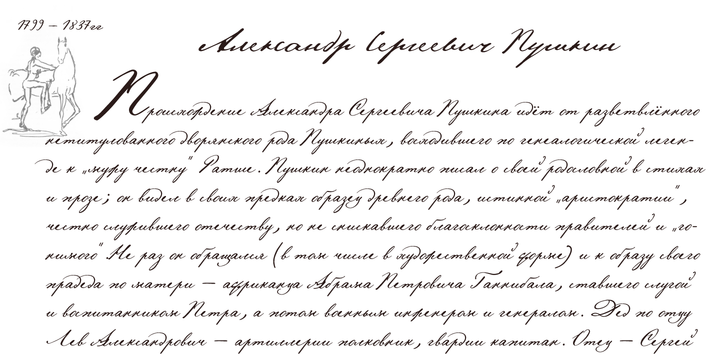 1799 – 1837гг
Александр Сергеевич Пушкин
Происхождение Александра Сергеевича Пушкина идёт от разветвлённого
нетитулованного дворянского рода Пушкиных, восходившего по генеалогической леген-
де к „мужу честну" Ратше. Пушкин неоднократно писал о своей родословной в стихах
и прозе; он видел в своих предках образец древнего рода, истинной „аристократии",
честно служившего отечеству, но не снискавшего благосклонности правителей и „го-
нимого" Не раз он обращался (в том числе в художественной форме) и к образу своего
прадеда по матери — африканца Абрама Петровича Ганнибала, ставшего слугой
и воспитанником Петра, а потом военным инженером и генералом. Дед по отцу
Лев Александрович — артиллерии полковник, гвардии капитан. Отец — Сергей